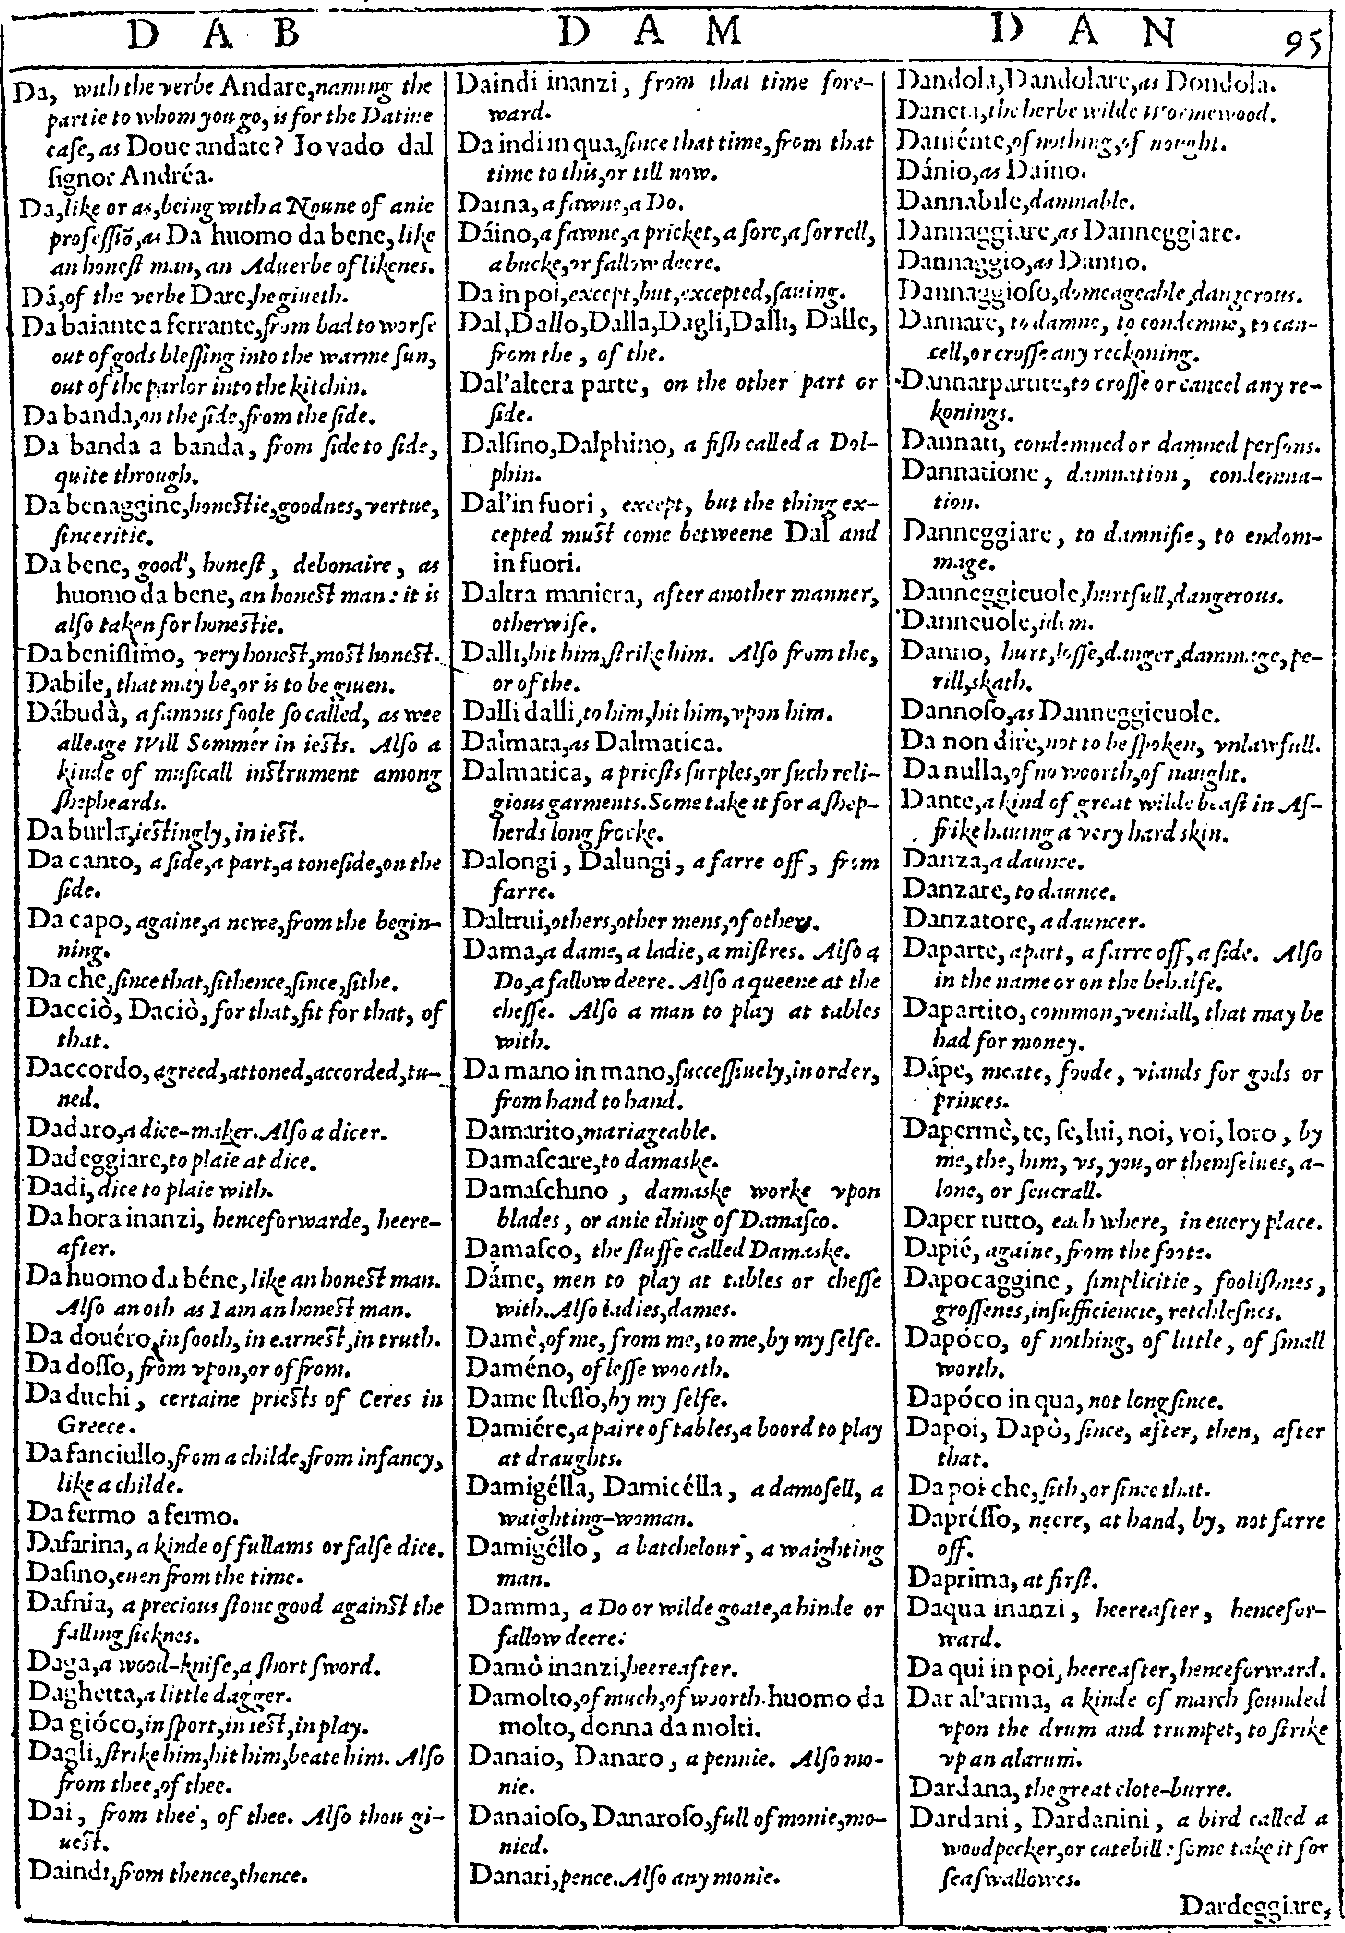 D A B D A M D A N 95
Da, with the verbe Andare, naming the
partie to whom you go, is for the Datiue
caſe, as Doue andate? Io vado dal
ſignor Andréa.
Da, like or as, being with a Noune of anie
profeſſiõ, as Da huomo da bene, like
an honeſt man, an Aduerbe of likenes.
Dá, of the verbe Dare, he giueth.
Da baiante a ferrante, from bad to worſe
out of gods bleſſing into the warme ſun,
out of the parlor into the kitchin.
Da banda, on the ſide, from the ſide.
Da banda a banda, from ſide to ſide,
quite through.
Da benaggine, honeſtie, goodnes, vertue,
ſinceritie.
Da bene, good, honeſt, debonaire, as
huomo da bene, an honeſt man: it is
alſo taken for honeſtie.
Da beniſſimo, very honeſt, moſt honeſt.
Dabile, that may be, or is to be giuen.
Dábudà, a famous foole ſo called, as wee
alleage Will Sommer in ieſts. Alſo a
kinde of muſicall inſtrument among
ſhepheards.
Da burla, ieſtingly, in ieſt.
Da canto, a ſide, a part, a toneſide, on the
ſide.
Da capo, againe, a newe, from the begin-
ning.
Da che, ſince that, ſithence, ſince, ſithe.
Dacciò, Daciò, for that, fit for that, of
that.
Daccordo, agreed, attoned, accorded, tu-
ned.
Dadaro, a dice-maker. Alſo a dicer.
Dadeggiare, to plaie at dice.
Dadi, dice to plaie with.
Da hora inanzi, henceforwarde, heere-
after.
Da huomo da béne, like an honeſt man.
Alſo an oth as I am an honeſt man.
Da douéro, in ſooth, in earneſt, in truth.
Da doſſo, from vpon, or of from.
Daduchi, certaine prieſts of Ceres in
Greece.
Da fanciullo, from a childe, from infancy,
like a childe.
Da fermo a fermo.
Dafarina, a kinde of fullams or falſe dice.
Dafino, euen from the time.
Dafnia, a precious ſtone good againſt the
falling ſicknes.
Daga, a wood-knife, a ſhort ſword.
Daghetta, a little dagger.
Da gióco, in ſport, in ieſt, in play.
Dagli, ſtrike him, hit him, beate him. Alſo
from thee, of thee.
Dai, from thee, of thee. Alſo thou gi-
ueſt.
Daindi, from thence, thence.
Daindi inanzi, from that time fore-
ward.
Da indi in qua, ſince that time, from that
time to this, or till now.
Daina, a fawne, a Do.
Dáino, a fawne, a pricket, a ſore, a ſorrell,
a bucke, or fallow deere.
Da in poi, except, but, excepted, ſauing.
Dal, Dallo, Dalla, Dagli, Dalli, Dalle,
from the, of the.
Dal'altera parte, on the other part or
ſide.
Dalfino, Dalphino, a fiſh called a Dol-
phin.
Dal'in fuori, except, but the thing ex-
cepted muſt come betweene Dal and
in fuori.
Daltra maniera, after another manner,
otherwiſe.
Dalli, hit him, ſtrike him. Alſo from the,
or of the.
Dalli dalli, to him, hit him, vpon him.
Dalmata, as Dalmatica.
Dalmatica, a prieſts ſurples, or ſuch reli-
gious garments. Some take it for a ſhep-
herds long frocke.
Dalongi, Dalungi, a farre off, from
farre.
Daltrui, others, other mens, of others.
Dama, a dame, a ladie, a miſtres. Alſo a
Do, a fallow deere. Alſo a queene at the
cheſſe. Alſo a man to play at tables
with.
Da mano in mano, ſucceſſiuely, in order,
from hand to hand.
Damarito, mariageable.
Damaſcare, to damaske.
Damaſchino, damaske worke vpon
blades, or anie thing of Damaſco.
Damaſco, the ſtuffe called Damaske.
Dáme, men to play at tables or cheſſe
with. Alſo ladies, dames.
Damè, of me, from me, to me, by my ſelfe.
Daméno, of leſſe woorth.
Dame ſteſſo, by my ſelfe.
Damiére, a paire of tables, a boord to play
at draughts.
Damigélla, Damicélla, a damoſell, a
waighting-woman.
Damigéllo, a batchelour, a waighting
man.
Damma, a Do or wilde goate, a hinde or
fallow deere:
Damò inanzi, heereafter.
Damolto, of much, of woorth. huomo da
molto, donna da molti.
Danaio, Danaro, a pennie. Alſo mo-
nie.
Danaioſo, Danaroſo, full of monie, mo-
nied.
Danari, pence. Alſo any monie.
Dandola, Dandolare, as Dondola.
Daneta, the herbe wilde Wormewood.
Daniénte, of nothing, of nought.
Dánio, as Daino.
Dannabile, damnable.
Dannaggiare, as Danneggiare.
Dannaggio, as Danno.
Dannaggioſo, domeageable, dangerous.
Dannare, to damne, to condemne, to can-
cell, or croſſe any reckoning.
Dannarpartite, to croſſe or cancel any re-
konings.
Dannati, condemned or damned perſons.
Dannatione, damnation, condemna-
tion.
Danneggiare, to damnifie, to endom-
mage.
Danneggieuole, hurtfull, dangerous.
Danneuole, idem.
Danno, hurt, loſſe, danger, dammage, pe-
rill, skath.
Dannoſo, as Danneggieuole.
Da non dire, not to be ſpoken, vnlawfull.
Da nulla, of no woorth, of naught.
Dante, a kind of great wilde beaſt in Af-
frike hauing a very hard skin.
Danza, a daunce.
Danzare, to daunce.
Danzatore, a dauncer.
Daparte, apart, a farre off, a ſide. Alſo
in the name or on the behalfe.
Dapartito, common, veniall, that may be
had for money.
Dápe, meate, foode, viands for gods or
princes.
Dapermè, te, ſe, lui, noi, voi, loro, by
me, the, him, vs, you, or themſelues, a-
lone, or ſeuerall.
Daper tutto, each where, in euery place.
Dapié, againe, from the foote.
Dapocaggine, ſimplicitie, fooliſhnes,
groſſenes, inſufficiencie, retchleſnes.
Dapóco, of nothing, of little, of ſmall
worth.
Dapóco in qua, not long ſince.
Dapoi, Dapò, ſince, after, then, after
that.
Da poi che, ſith, or ſince that.
Dapréſſo, neere, at hand, by, not farre
off.
Daprima, at firſt.
Daqua inanzi, heereafter, hencefor-
ward.
Da qui in poi, heereafter, henceforward.
Dar al'arma, a kinde of march ſounded
vpon the drum and trumpet, to ſtrike
vp an alarum.
Dardana, the great clote-burre.
Dardani, Dardanini, a bird called a
woodpecker, or eatebill: ſome take it for
ſeaſwallowes.
Dardeggiare,